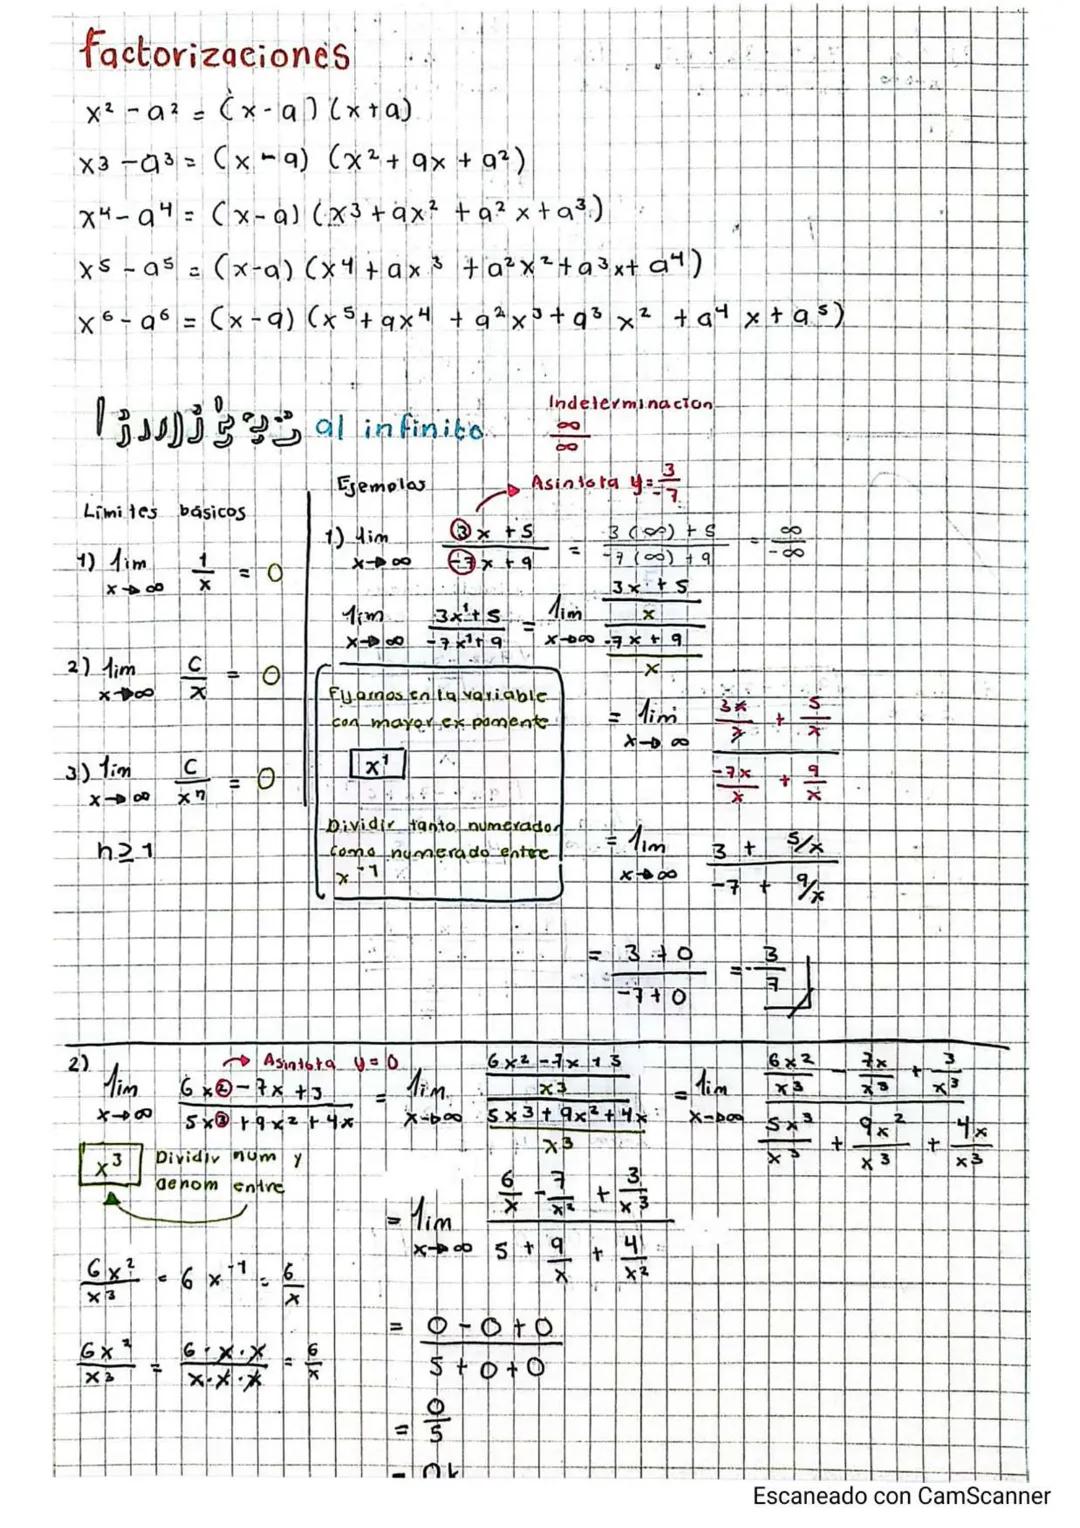 factorizaciones
x² - a² = (x-a)(x+a)
x3 - a³ = (x-a) (x² + ax + a²)
x⁴ - a⁴ = (x-a) (x³ + ax² + a² x + a³)
x⁵ - a⁵ = (x-a) (x⁴ + ax³ + a²x² + a³x + a⁴)
x⁶ - a⁶ = (x-a) (x⁵ + ax⁴ + a²x³ + a³ x² + a⁴ x + a⁵)
al infinito
Indeterminacion
∞/∞
Limites básicos
1) lim x→∞ 1/x = 0
2) lim x→∞ C/x = 0
3) lim x→∞ C/xⁿ = 0
n≥1
Ejemplos
Asintota y = 3/-7
1) lim x→∞ (3x + 5)/(-7x + 9) = (3(∞) + 5)/(-7(∞) + 9) = ∞/-∞
lim x→∞ (3x¹ + 5)/(-7x¹ + 9) = lim x→∞ ((3x + 5)/x)/((-7x + 9)/x)
Fijarnos en la variable
con mayor exponente
x¹
Dividir tanto numerador
como numerado entre
x⁻¹
= lim x→∞ (3x/x + 5/x)/(-7x/x + 9/x)
= lim x→∞ (3 + 5/x)/(-7 + 9/x)
= (3 + 0)/(-7 + 0) = -3/7
2) Asintota y = 0
lim x→∞ (6x² - 7x + 3)/(5x³ + 9x² + 4x) = lim x→∞ ((6x² - 7x + 3)/x3)/((5x3 + 9x² + 4x)/x3) = lim x→∞ (6x²/x³ - 7x/x³ + 3/x³)/(5x³/x³ + 9x²/x3 + 4x/x3)
x³ Dividir num y
denom entre
= lim x→∞ (6/x - 7/x² + 3/x³)/(5 + 9/x + 4/x²)
6x²/x3 = 6x⁻¹ = 6/x
= (0 - 0 + 0)/(5 + 0 + 0)
6x²/x3 = (6·x·x)/(x·x·x) = 6/x
= 0/5
Escaneado con CamScanner